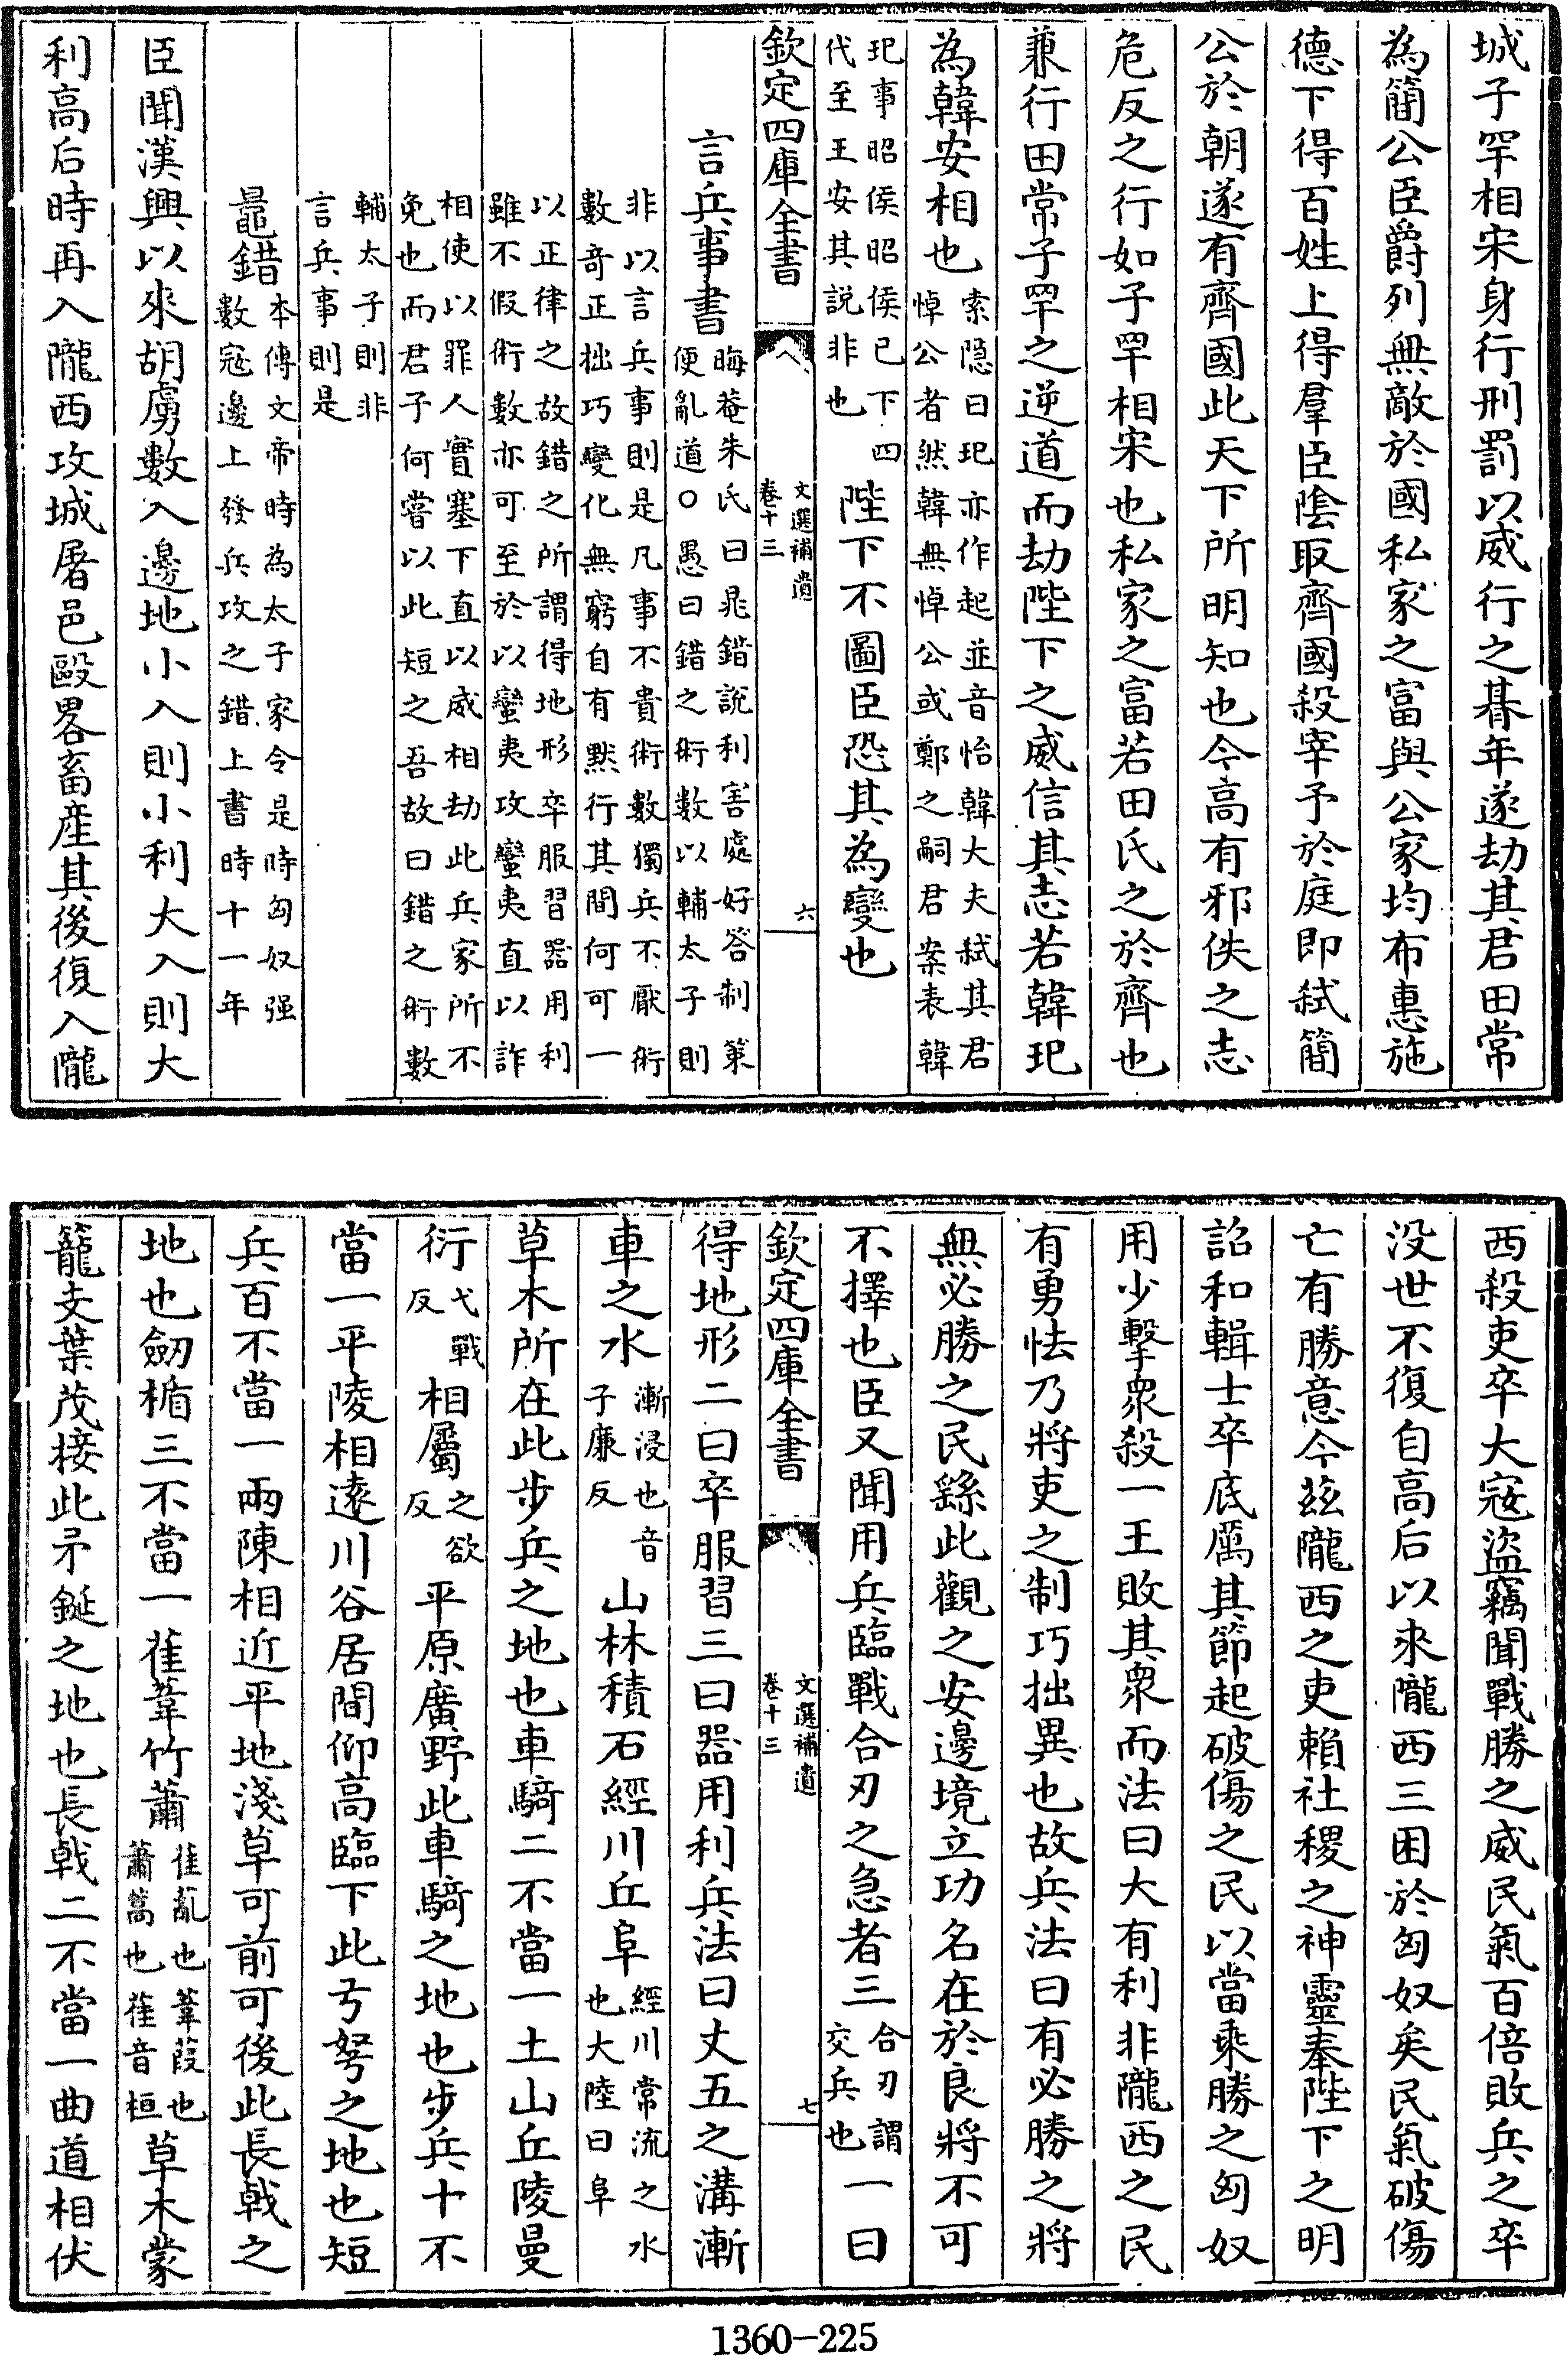 城子罕相宋身行刑罰以威行之朞年遂劫其君田常
為簡公臣爵列無敵於國私家之富與公家均布惠施
德下得百姓上得羣臣陰取齊國殺宰予於庭即弑簡
公於朝遂有齊國此天下所明知也今高有邪佚之志
危反之行如子罕相宋也私家之富若田氏之於齊也
兼行田常子罕之逆道而劫陛下之威信其志若韓玘
為韓安相也索隐曰玘亦作起並音怡韓大夫弑其君悼公者然韓無悼公或鄭之嗣君案表韓
玘事昭侯昭侯已下四代至王安其説非也陛下不圖臣恐其為變也
欽定四庫全書 文選補遺卷十三 六
言兵事書晦菴朱氏曰鼂錯說利害處好答制策便亂道○愚曰錯之術數以輔太子則
非以言兵事則是凡事不貴術數獨兵不厭術數奇正拙巧變化無窮自有默行其間何可一
以正律之故錯之所謂得地形卒服習器用利雖不假術數亦可至於以蠻夷攻蠻夷直以詐
相使以罪人實塞下直以威相劫此兵家所不免也而君子何嘗以此短之吾故曰錯之術數
輔太子則非言兵事則是
鼂錯本傳文帝時為太子家令是時匈奴强數寇邊上發兵攻之錯上書時十一年
臣聞漢興以來胡虜數入邊地小入則小利大入則大
利高后時再入隴西攻城屠邑敺畧畜産其後復入隴
西殺吏卒大寇盜竊聞戰勝之威民氣百倍敗兵之卒
没世不復自高后以來隴西三困於匈奴矣民氣破傷
亡有勝意今茲隴西之吏賴社稷之神靈奉陛下之明
詔和輯士卒底厲其節起破傷之民以當乘勝之匈奴
用少擊衆殺一王敗其衆而法曰大有利非隴西之民
有勇怯乃將吏之制巧拙異也故兵法曰有必勝之將
無必勝之民繇此觀之安邊境立功名在於良將不可
不擇也臣又聞用兵臨戰合刃之急者三合刃謂交兵也一曰
欽定四庫全書 文選補遺卷十三 七
得地形二曰卒服習三曰器用利兵法曰丈五之溝漸
車之水漸浸也音子廉反山林積石經川丘阜經川常流之水也大陸曰阜
草木所在此步兵之地也車騎二不當一土山丘陵曼
衍弋戰反相屬之欲反平原廣野此車騎之地也步兵十不
當一平陵相遠川谷居間仰高臨下此弓弩之地也短
兵百不當一兩陳相近平地淺草可前可後此長戟之
地也劒楯三不當一萑葦竹蕭萑薍也葦葭也蕭蒿也萑音桓草木蒙
籠支葉茂接此矛鋋之地也長戟二不當一曲道相伏
1360-225